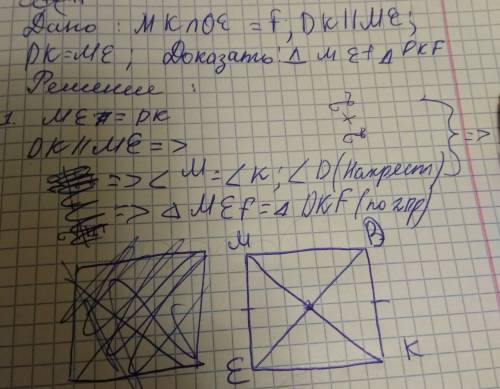 Дано: MK∩DE = f; DK||ME;
DK=ME; Доказать: Δ MEf Δ DKF
Решение :
1. ME = DK
DK||ME =>
=> ∠M=∠K; ∠D (Накрест) =>
=> Δ MEf = Δ DKF (по 2пр)
M D
E K